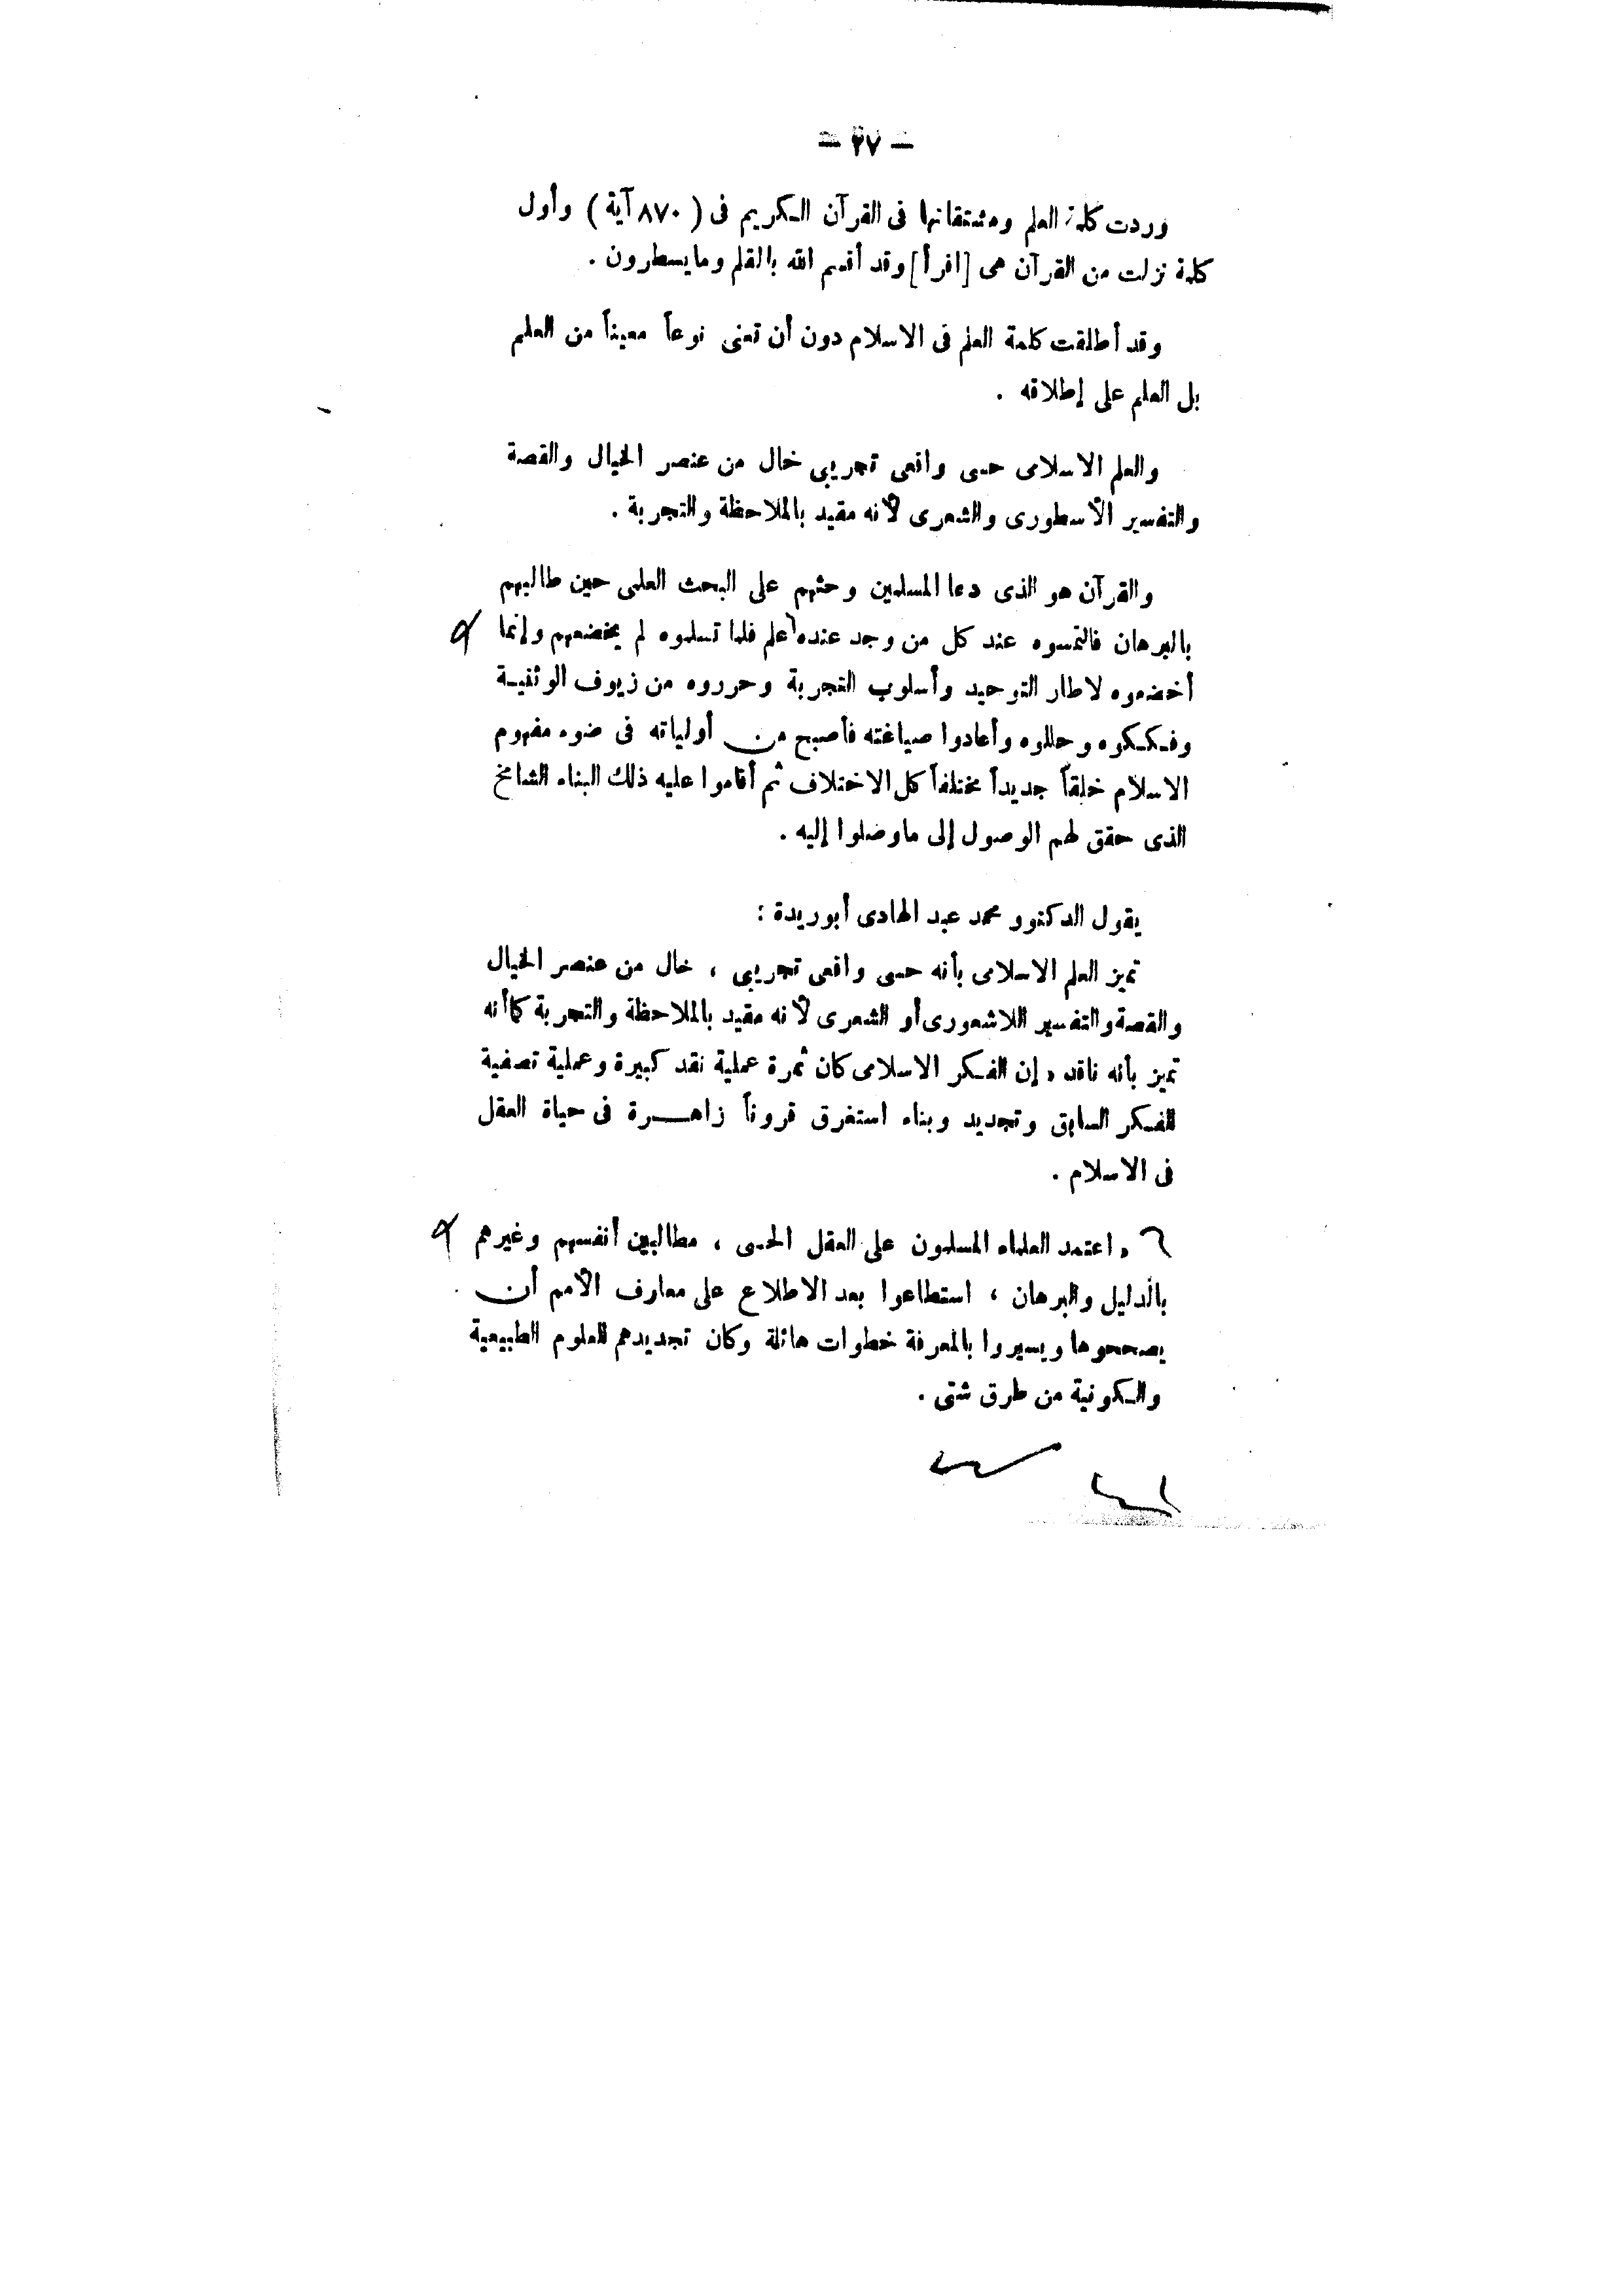 — ٢٧ —
وردت كلمة العلم ومشتقاتها فى القرآن الكريم فى ( ٨٧٠ آية ) وأول
كلمة نزلت من القرآن هى [اقرأ] وقد أقسم الله بالقلم وما يسطرون .
وقد أطلقت كلمة العلم فى الاسلام دون أن تعنى نوعاً معيناً من العلم
بل العلم على إطلاقه .
والعلم الاسلامى حسى واقعى تجريبى خال من عنصر الخيال والقصة
والتفسير الأسطورى والشعرى لأنه مقيد بالملاحظة والتجربة .
والقرآن هو الذى دعا المسلمين وحثهم على البحث العلمى حين طالبهم
بالبرهان فالتمسوه عند كل من وجد عنده علم فلما تسلموه لم يخضعهم وإنما
أخضعوه لاطار التوحيد وأسلوب التجربة وحرروه من زيوف الوثنية
وفككوه وحللوه وأعادوا صياغته فأصبح من أولياته فى ضوء مفهوم
الاسلام خلقاً جديداً مختلفاً كل الاختلاف ثم أقاموا عليه ذلك البناء الشامخ
الذى حقق لهم الوصول إلى ماوصلوا إليه .
يقول الدكتور محمد عبد الهادى أبوريدة :
تميز العلم الاسلامى بأنه حسى واقعى تجريبى ، خال من عنصر الخيال
والقصة والتفسير اللاشعورى أو الشعرى لأنه مقيد بالملاحظة والتجربة كما أنه
تميز بأنه ناقد ، إن الفكر الاسلامى كان ثمرة عملية نقد كبيرة وعملية تصفية
للفكر السابق وتجديد وبناء استغرق قروناً زاهرة فى حياة العقل
فى الاسلام .
، اعتمد العلماء المسلمون على العقل الحسى ، مطالبين أنفسهم وغيرهم
بالدليل والبرهان ، استطاعوا بعد الاطلاع على معارف الأمم أن
يصححوها ويسيروا بالمعرفة خطوات هائلة وكان تجديدهم للعلوم الطبيعية
والكونية من طرق شتى .